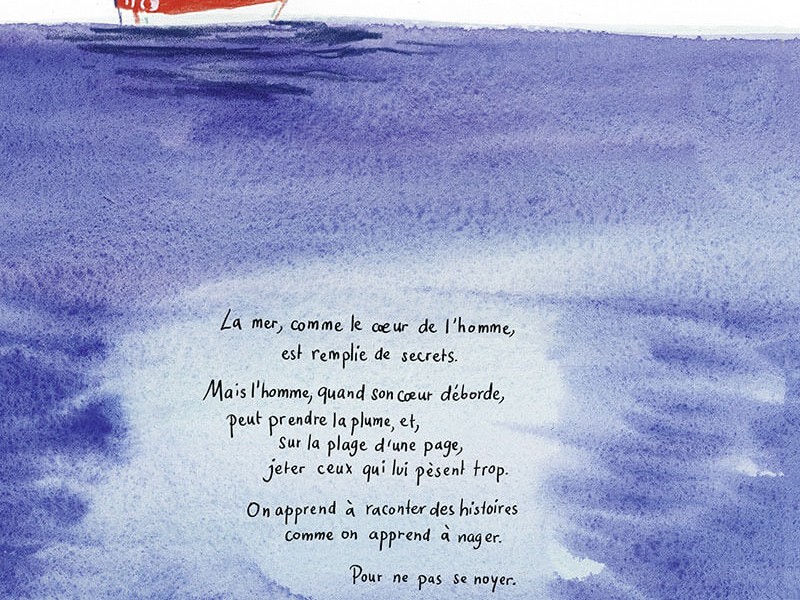 La mer, comme le cœur de l'homme,
est remplie de secrets.
Mais l'homme, quand son cœur déborde,
peut prendre la plume, et,
sur la plage d'une page,
jeter ceux qui lui pèsent trop.
On apprend à raconter des histoires
comme on apprend à nager.
Pour ne pas se noyer.